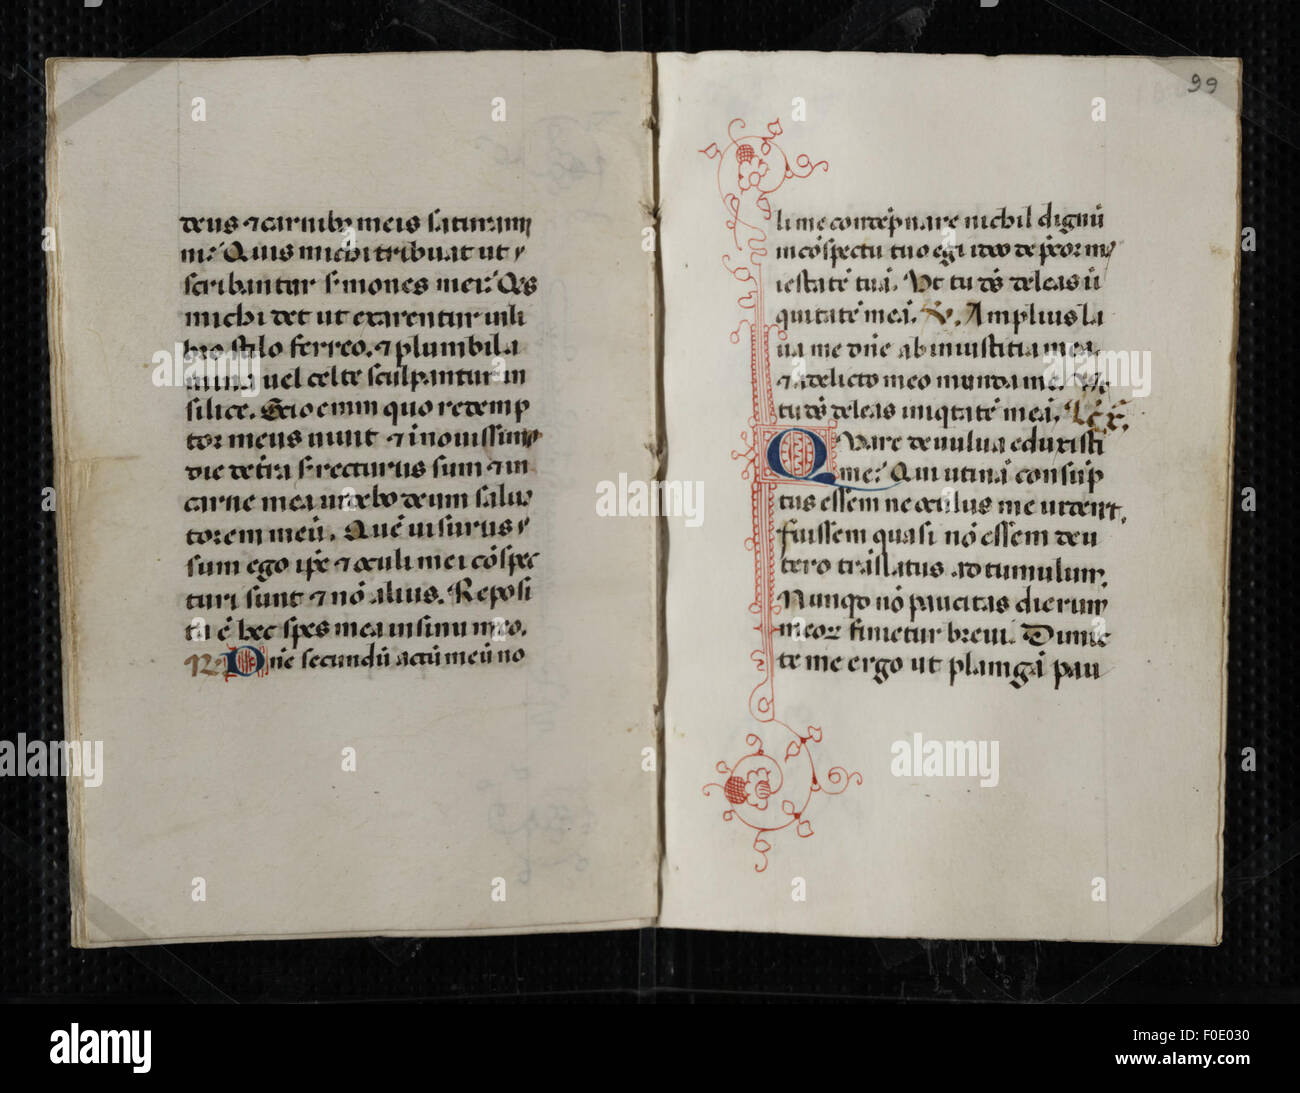 deus ⁊ carnibꝰ meis saturami
nĩ? Quis michi tribuat ut
scribantur s̃mones mei? Q̃s
michi det ut exarentur in li
bro stilo ferreo. ⁊ plumbi la
mina uel celte sculpantur in
silice. Scio enim quo redemp
tor meus uiuit ⁊ in nouissimo
die de tr̃a s̃recturus sum ⁊ in
carne mea uidebo deum salua
torem meũ. Quẽ uisurus
sum ego ip̃e ⁊ oculi mei cõspec
turi sunt ⁊ nõ alius. Reposi
ta ẽ hec spes mea in sinu meo.
R. Dñe secundũ actũ meũ no
99
li me condẽpnare nichil dignũ
in cõspectu tuo egi ideo dep̃cor ma
iestatẽ tuã. Ut tu dẽs deleas ĩi
quitatẽ meã. V. Amplius la
ua me dñe ab iniustitia mea
⁊ a delicto meo munda me. Ut
tu dẽs deleas iniq̃tatẽ meã. Lcc.
Quare de uulua eduxisti
me? Qui utinã consũp
tus essem ne oculus me uideret.
Fuissem quasi nõ essem de u
tero trãslatus ad tumulum.
Nunqd nõ paucitas dierum
meoꝝ finietur breui. Dimic
te me ergo ut plangã pau
alamy
Image ID: F0E030
www.alamy.com